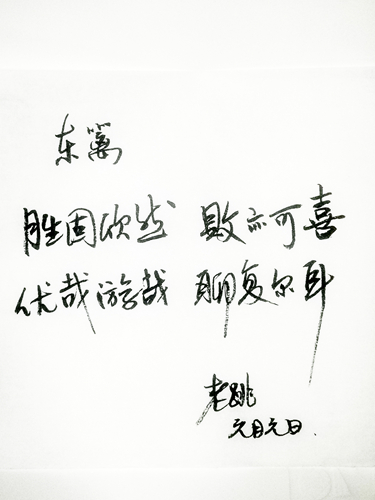 东篱
胜固欣然 败亦可喜
优哉游哉 聊复尔耳
老跳
元月元日.